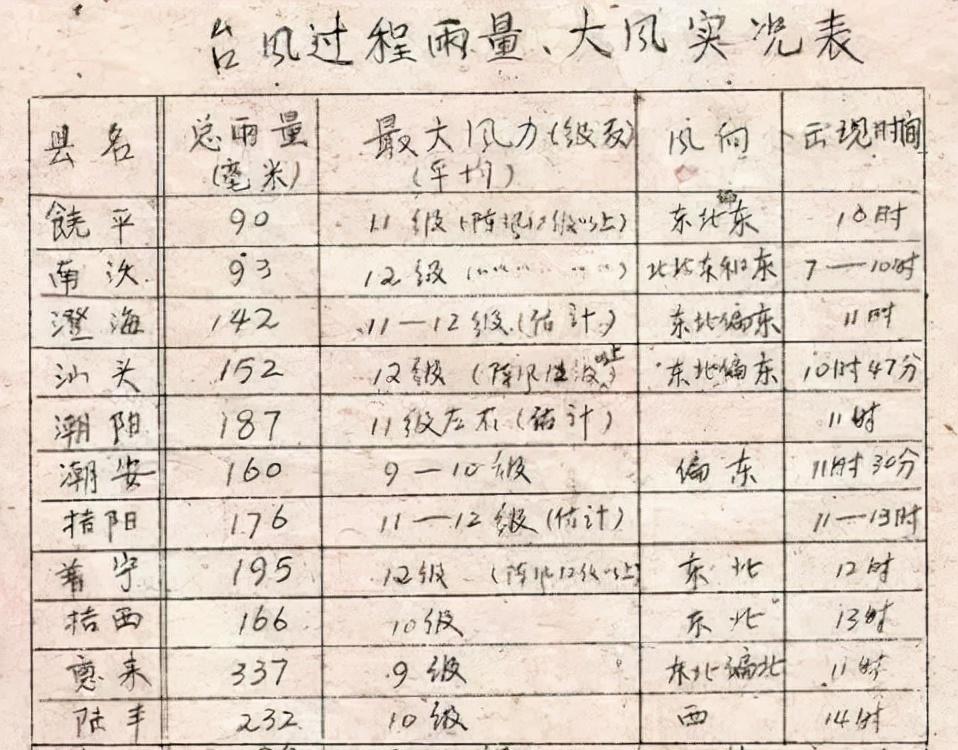 台风过程雨量、大风实况表
县名 总雨量(毫米) 最大风力(级数)(平均) 风向 出现时间
饶平 90 11级(阵风12级以上) 东北偏东 10时
南汷 93 12级(〃〃 〃〃) 北北东和东 7—10时
澄海 142 11—12级(估计) 东北偏东 11时
汕头 152 12级(阵风12级以上) 东北偏东 10时47分
潮阳 187 11级左右(估计) 11时
潮安 160 9—10级 偏东 11时30分
揭阳 176 11—12级(估计) 11—13时
普宁 195 12级 (阵风12级以上) 东北 12时
揭西 166 10级 东北 13时
惠来 337 9级 东北偏北 11时
陆丰 232 10级 西 14时